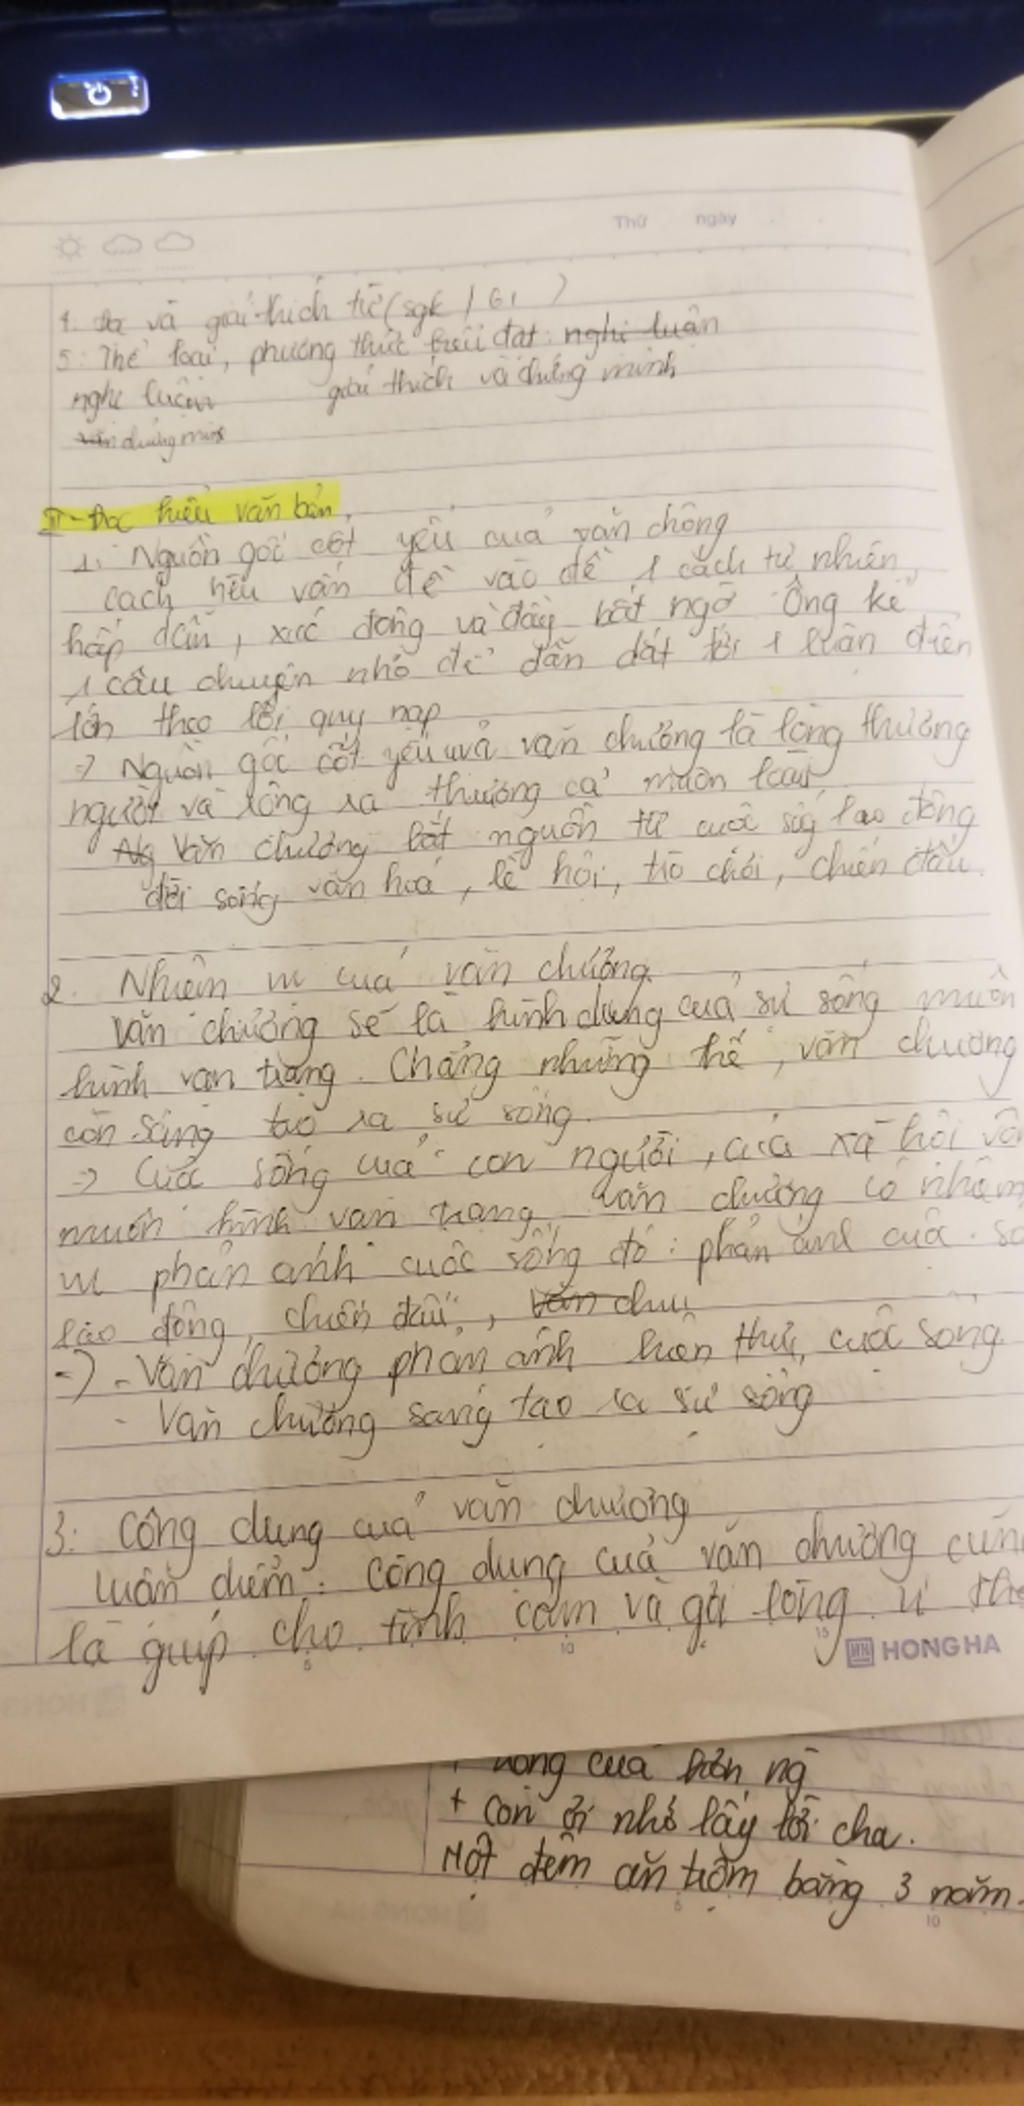 Thứ ngày
4. và giải thích từ (sgk / 61 )
5: Thể loại, phương thức biểu đạt: nghị luận
nghị luận giải thích và chứng minh
văn chứng minh
II - Đọc hiểu văn bản.
1. Nguồn gốc cốt yếu của văn chông
cách nêu vấn đề vào đề 1 cách tự nhiên,
hấp dẫn, xúc động và đầy bất ngờ. Ông kể
1 câu chuyện nhỏ để dẫn dắt tới 1 luận điểm
lớn theo lối quy nạp
=> Nguồn gốc cốt yếu của văn chương là lòng thương
người và rộng ra thương cả muôn loài
Ng Văn chương bắt nguồn từ cuộc sống lao động
đời sống văn hoá, lễ hội, trò chơi, chiến đấu.
2. Nhiệm vụ của văn chương.
Văn chương sẽ là hình dung của sự sống muôn
hình vạn trạng. Chẳng những thế, văn chương
còn sáng tạo ra sự sống.
=> Cuộc sống của con người, của xã hội vốn
muôn hình vạn trạng văn chương có nhiệm
vụ phản ánh cuộc sống đó: phản ánh cuộc số
lao động, chiến đấu, văn chư
=> - Văn chương phản ánh hiện thực cuộc sống
- Văn chương sáng tạo ra sự sống
3: Công dụng của văn chương
Luận điểm: Công dụng của văn chương cũng
là giúp cho tình cảm và gợi lòng vị tha
5 10 15
HONG HA
của hắn ng
+ Con ơi nhớ lấy lời cha.
Một đêm ăn trộm bằng 3 năm
10